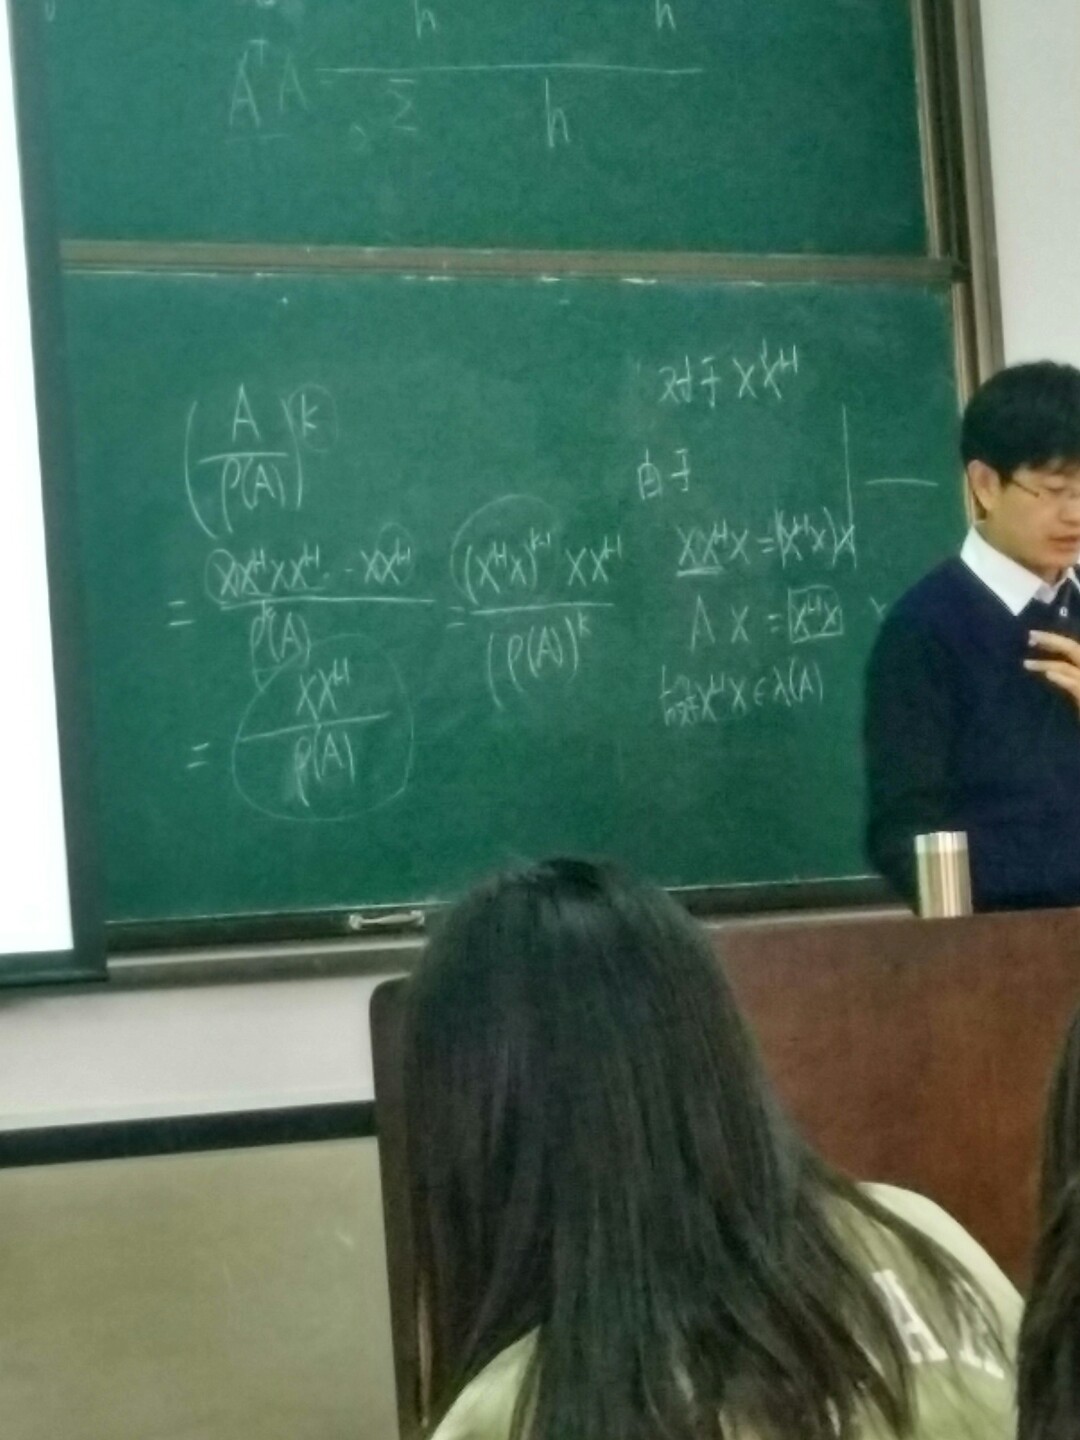 h h
AᵀA
Σ h
(A/ρ(A))ᵏ
= xxᴴxxᴴ…xxᴴ/ρᵏ(A) = (xᴴx)ᵏ⁻¹xxᴴ/(ρ(A))ᵏ
= xxᴴ/ρ(A)
对于 xxᴴ
由于
xxᴴx = (xᴴx)x
A x = xᴴx
xᴴx ∈ λ(A)
A